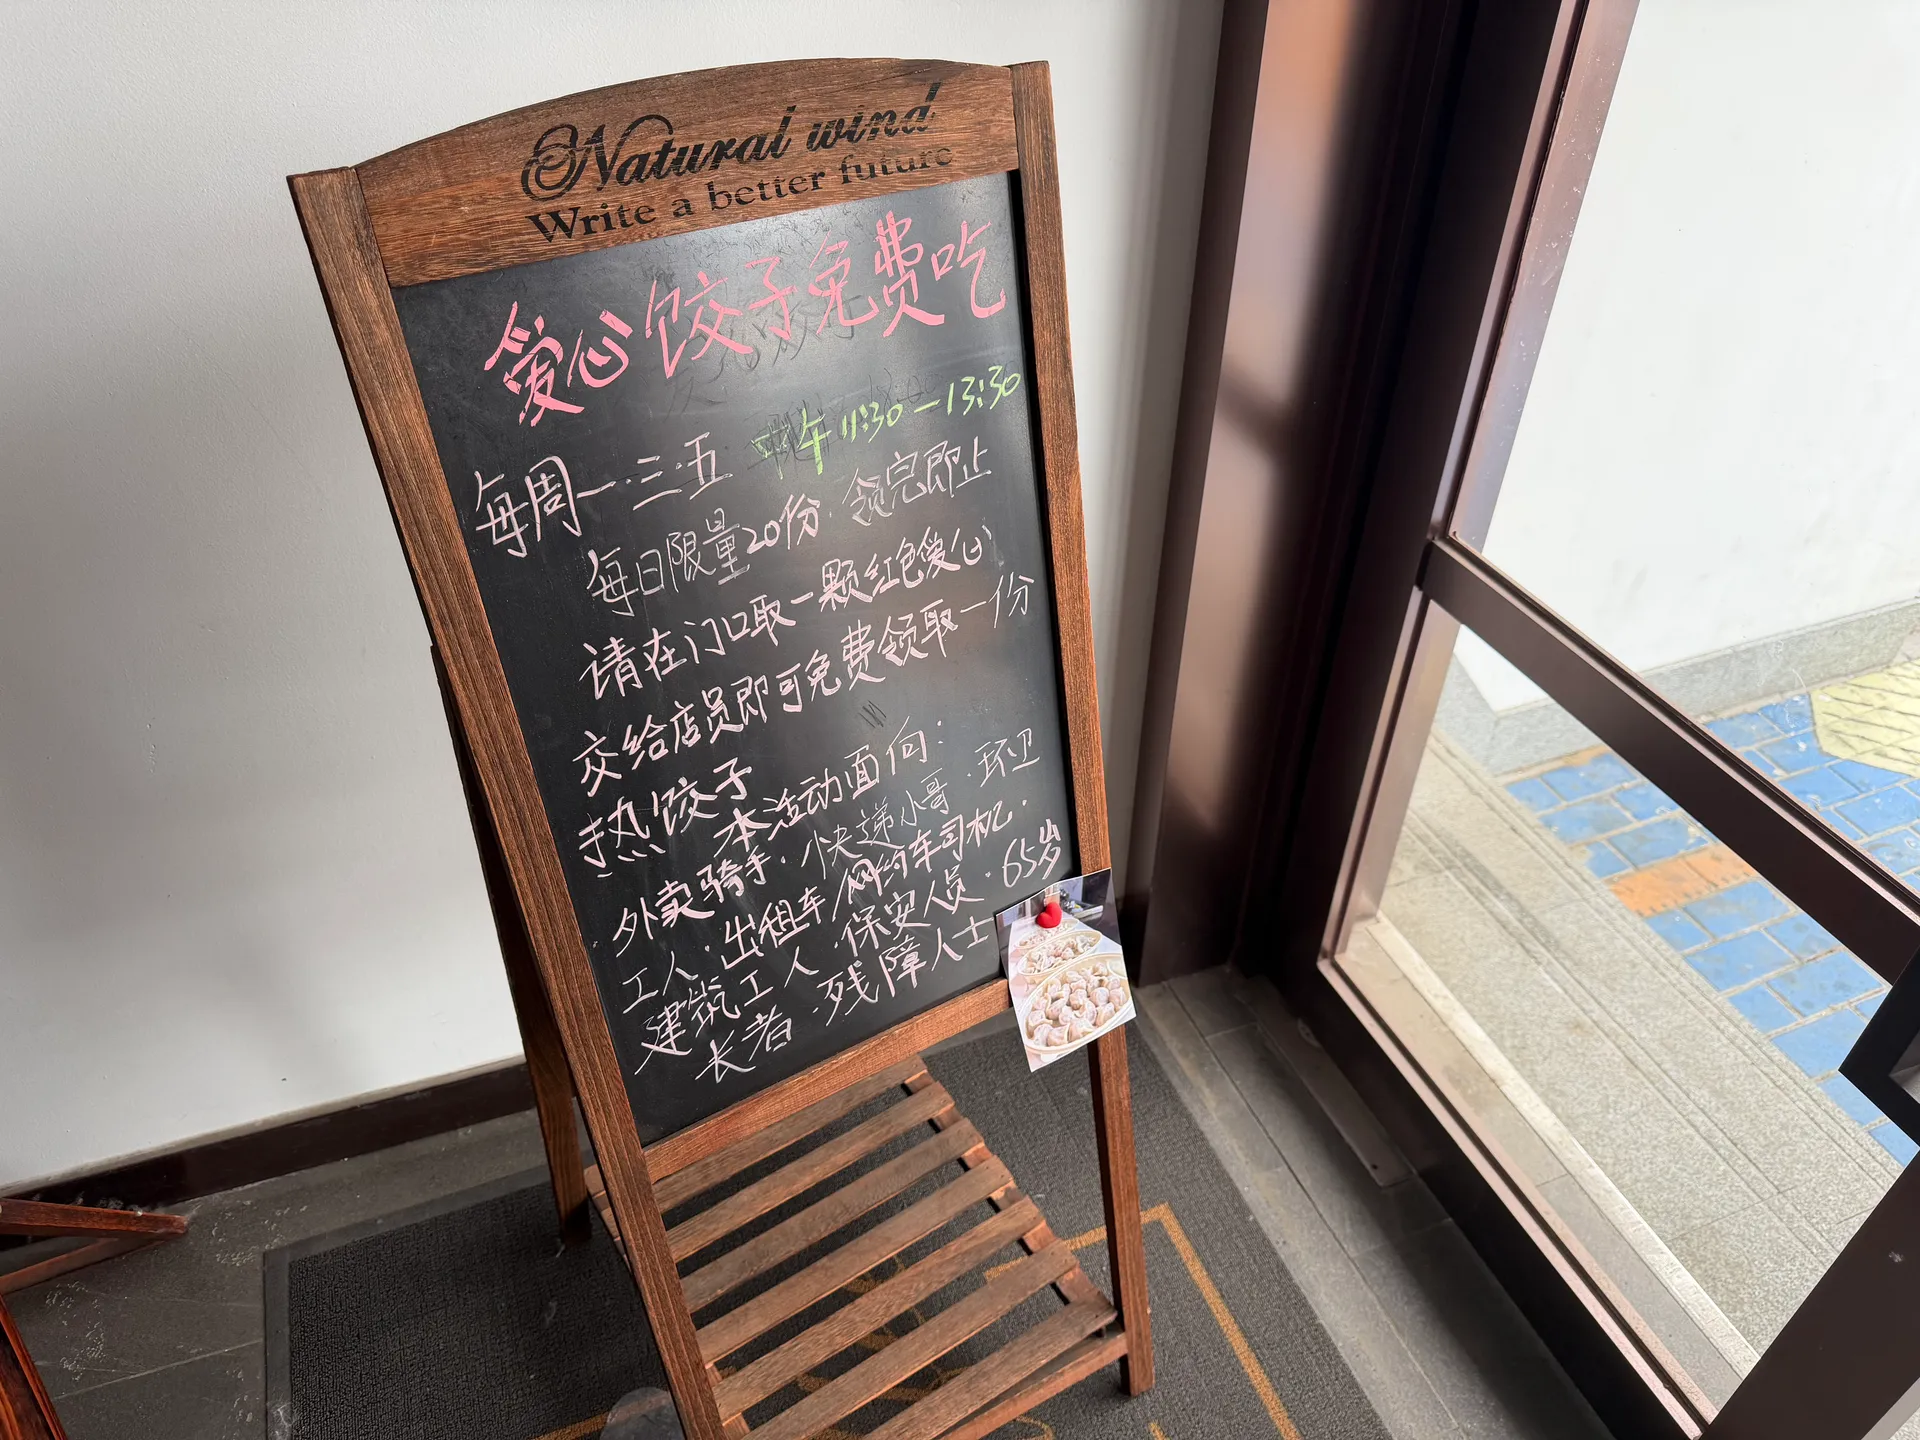 Natural wind
Write a better future
爱心饺子免费吃
每周一·三·五 中午 11:30—13:30
每日限量20份·领完即止
请在门口取一颗红色爱心
交给店员即可免费领取一份
热饺子
本活动面向:
外卖骑手·快递小哥·环卫
工人·出租车/网约车司机·
建筑工人·保安人员·65岁
长者·残障人士